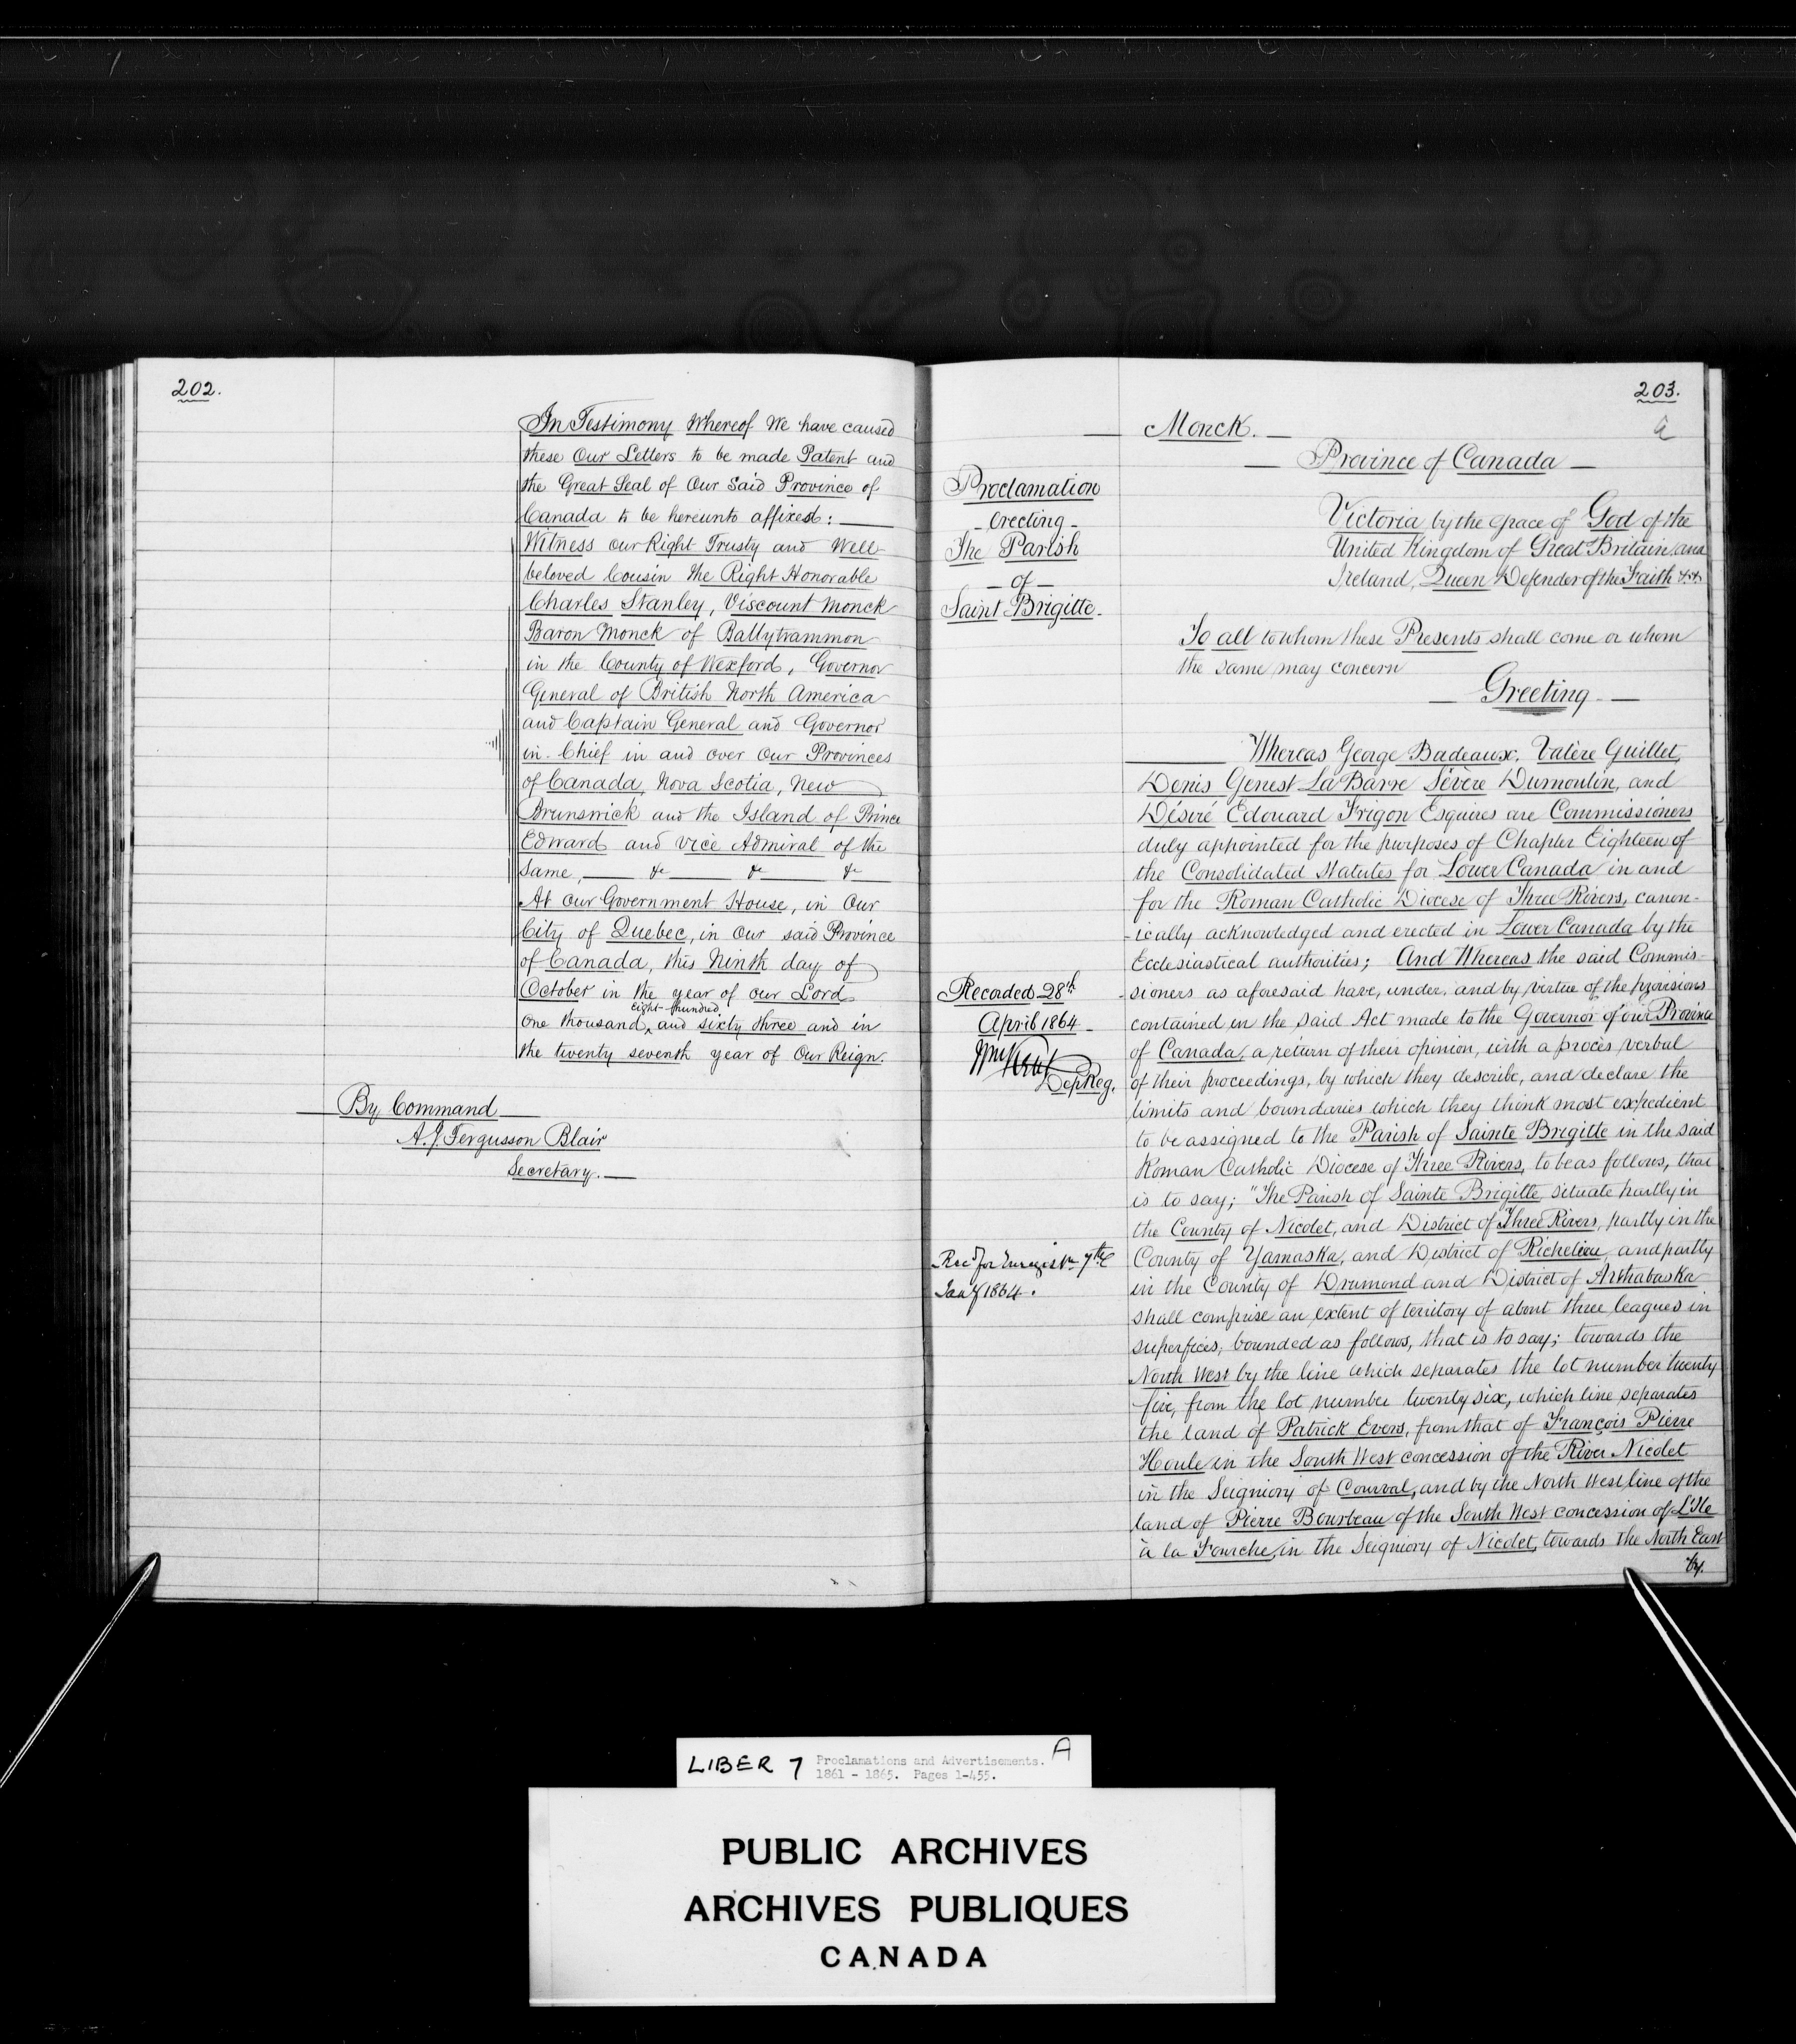 202.
In Testimony Whereof We have caused
these Our Letters to be made Patent and
the Great Seal of Our Said Province of
Canada to be hereunto affixed:
Witness our Right Trusty and Well-
beloved Cousin the Right Honorable
Charles Stanley, Viscount Monck
Baron Monck of Ballytrammon
in the County of Wexford, Governor
General of British North America
and Captain General and Governor
in Chief in and over Our Provinces
of Canada, Nova Scotia, New
Brunswick and the Island of Prince
Edward and Vice Admiral of the
Same, — &c — &c — &c
At our Government House, in Our
City of Quebec, in Our said Province
of Canada, this Ninth day of
October in the year of our Lord
One thousand eight hundred and sixty three and in
the twenty seventh year of Our Reign.
By Command
A. J. Fergusson Blair
Secretary.
203.
a
Monck.
Province of Canada
Proclamation
erecting
The Parish
of
Saint Brigitte.
Victoria, by the Grace of God of the
United Kingdom of Great Britain and
Ireland, Queen Defender of the Faith &c &c
To all to whom these Presents shall come or whom
the same may concern
Greeting
Whereas George Badeaux, Valère Guillet,
Denis Genest La Barre Sévère Dumoulin, and
Désiré Edouard Frigon Esquires are Commissioners
duly appointed for the purposes of Chapter Eighteen of
the Consolidated Statutes for Lower Canada in and
for the Roman Catholic Diocese of Three Rivers, canon-
-ically acknowledged and erected in Lower Canada by the
Ecclesiastical authorities; And Whereas the said Commis-
-sioners as aforesaid have, under, and by virtue of the provisions
contained in the said Act made to the Governor of our Province
of Canada, a return of their opinion, with a procès verbal
of their proceedings, by which they describe, and declare the
limits and boundaries which they think most expedient
to be assigned to the Parish of Sainte Brigitte in the said
Roman Catholic Diocese of Three Rivers, to be as follows, that
is to say; "The Parish of Sainte Brigitte, situate partly in
the County of Nicolet, and District of Three Rivers, partly in the
County of Yamaska, and District of Richelieu, and partly
in the County of Drumond and District of Arthabaska
shall comprise an extent of territory of about three leagues in
superfices, bounded as follows, that is to say; towards the
North West by the line which separates the lot number twenty
five, from the lot number twenty six, which line separates
the land of Patrick Evers, from that of François Pierre
Houle in the South West concession of the River Nicolet
in the Seigniory of Courval, and by the North West line of the
land of Pierre Bourbeau of the South West concession of L'Ile
à la Fourche, in the Seigniory of Nicolet, towards the North East
by.
Recorded 28th
April 1864
Dep Reg.
Recd for 7th
Jany 1864.
LIBER 7 Proclamations and Advertisements. A
1861 - 1865. Pages 1-455.
PUBLIC ARCHIVES
ARCHIVES PUBLIQUES
CANADA